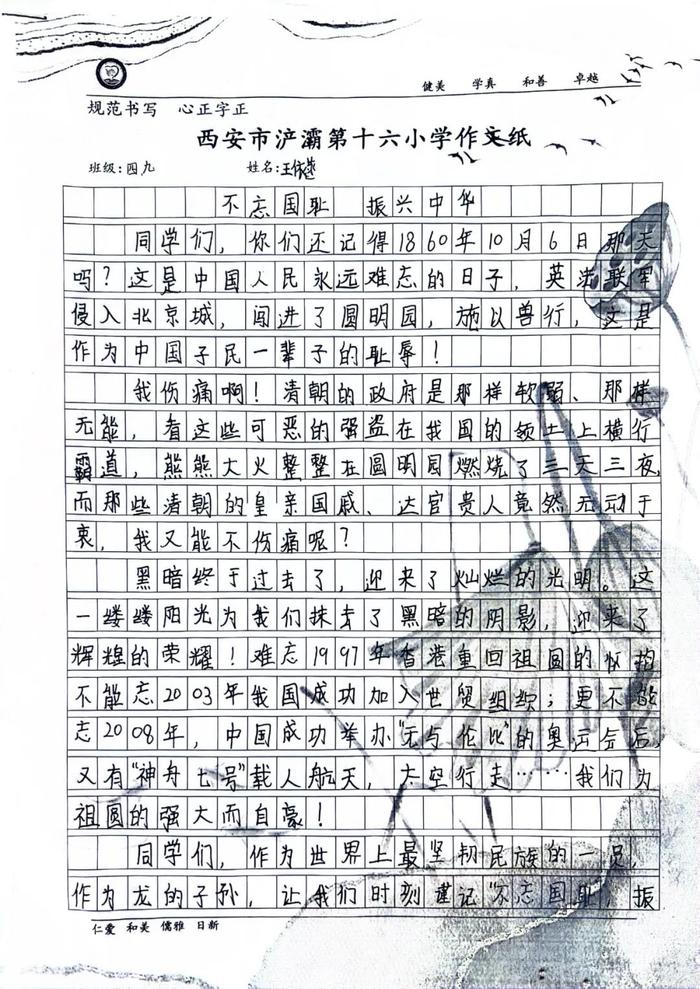 健美 学真 和善 卓越
规范书写 心正字正
西安市浐灞第十六小学作文纸
班级:四九 姓名:王依
不忘国耻 振兴中华
同学们，你们还记得1860年10月6日那天
吗？这是中国人民永远难忘的日子，英法联军
侵入北京城，闯进了圆明园，施以兽行，这是
作为中国子民一辈子的耻辱！
我伤痛啊！清朝的政府是那样软弱、那样
无能，看这些可恶的强盗在我国的领土上横行
霸道，熊熊大火整整在圆明园燃烧了三天三夜，
而那些清朝的皇亲国戚、达官贵人竟然无动于
衷，我又能不伤痛呢？
黑暗终于过去了，迎来了灿烂的光明。这
一缕缕阳光为我们抹去了黑暗的阴影，迎来了
辉煌的荣耀！难忘1997年香港重回祖国的怀抱
不能忘2003年我国成功加入世贸组织；更不能
忘2008年，中国成功举办“无与伦比”的奥运会后，
又有“神舟七号”载人航天，太空行走……我们为
祖国的强大而自豪！
同学们，作为世界上最坚韧民族的一员，
作为龙的子孙，让我们时刻谨记“不忘国耻，振
仁爱 和美 儒雅 日新